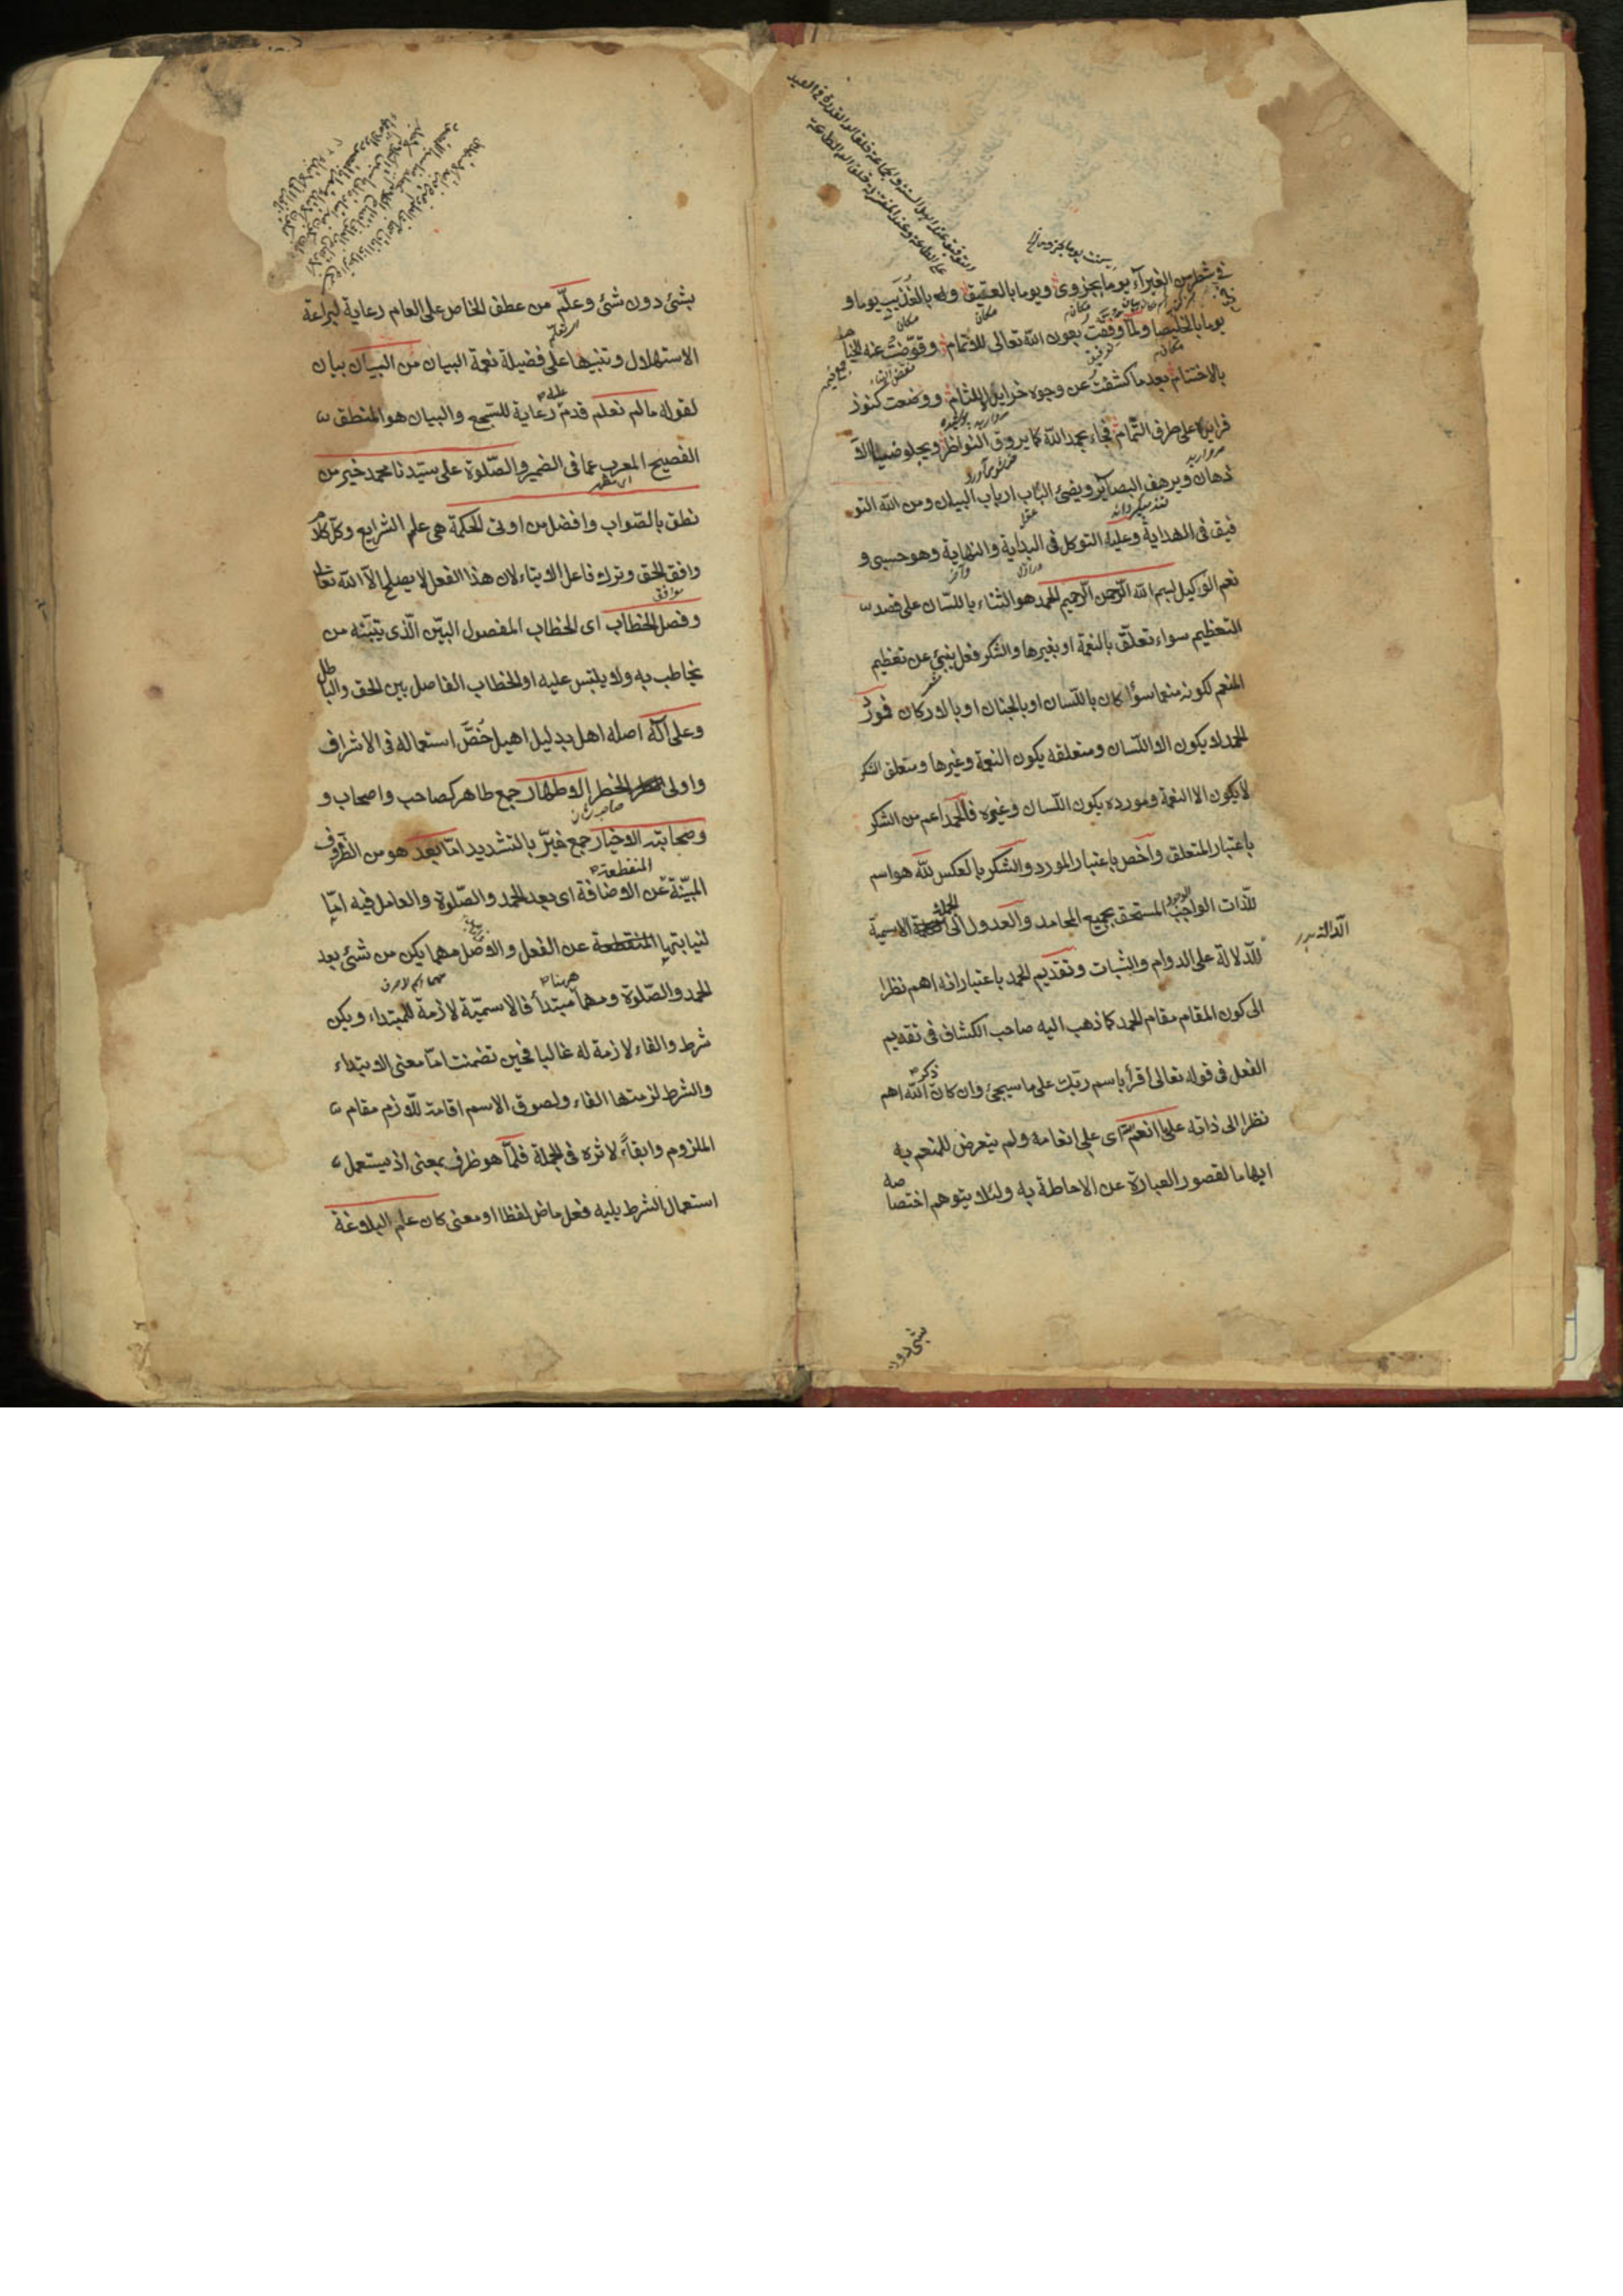 في شطر من الغبرآء يوما بجزوى ويوما بالعقيق و بالعذيب يوما و
يوما بالخليصا ولما وفقت بعون الله تعالى للاتمام وقوضت عنه الخيا
بالاختتام بعد ما كشفت عن وجوه خرايده اللثام ووضعت كنوز
فرايده على طرف الثمام فجاء بحمد الله كما يروق النواظر ويجلو صداء الا
ذهان ويرهف البصاير ويضئ الباب ارباب البيان ومن الله التو
فيق في الهداية وعليه التوكل في البداية والنهاية وهو حسبي و
نعم الوكيل بسم الله الرحمن الرحيم الحمد هو الثناء باللسان على قصد
التعظيم سواء تعلق بالنعمة او بغيرها والشكر فعل ينبئ عن تعظيم
المنعم لكونه منعما سواء كان باللسان او بالجنان او بالاركان فمورد
الحمد لا يكون الا اللسان ومتعلقه يكون النعمة وغيرها ومتعلق الشكر
لا يكون الا النعمة ومورده يكون اللسان وغيره فالحمد اعم من الشكر
باعتبار المتعلق واخص باعتبار المورد والشكر بالعكس لله هو اسم
للذات الواجب الوجود المستحق بجميع المحامد والعدول الى الجملة الاسمية
للدلالة على الدوام والثبات وتقديم الحمد باعتبار انه اهم نظرا
الى كون المقام مقام الحمد كما ذهب اليه صاحب الكشاف في تقديم
الفعل في قوله تعالى اقرأ باسم ربك على ما سيجئ وان كان ذكر الله اهم
نظرا الى ذاته على ما انعم اى على انعامه ولم يتعرض للمنعم به
ايهاما لقصور العبارة عن الاحاطة به ولئلا يتوهم اختصاصه
بشئ دون
بشئ دون شئ وعلم من عطف الخاص على العام رعاية لبراعة
الاستهلال وتنبيها على فضيلة نعمة البيان من البيان بيان
لقوله ما لم نعلم قدم عليه رعاية للسجع والبيان هو المنطق
الفصيح المعرب عما في الضمير والصلوة على سيدنا محمد خير من
نطق بالصواب وافضل من اوتى الحكمة هي علم الشرايع وكل كلام
وافق الحق وترك فاعل الايتاء لان هذا الفعل لا يصلح الا الله تعالى
وفصل الخطاب اى الخطاب المفصول البين الذى يتبينه من
يخاطب به ولا يلتبس عليه او الخطاب الفاصل بين الحق والباطل
وعلى آله اصله اهل بدليل اهيل خص استعماله في الاشراف
واولى الخطر الاطهار جمع طاهر كصاحب واصحاب و
وصحابته الاخيار جمع خير بالتشديد اما بعد هو من الظروف
المبينة المنقطعة عن الاضافة اى بعد الحمد والصلوة والعامل فيه اما
لنيابتها عن الفعل والاصل مهما يكن من شئ بعد
الحمد والصلوة ومهما ههنا مبتدأ فالاسمية لازمة للمبتداء ويكن
شرط والفاء لازمة له غالبا فحين تضمنت اما معنى الابتداء
والشرط لزمتها الفاء ولصوق الاسم اقامة للازم مقام
الملزوم وابقاء لاثره في الجملة فلما هو ظرف بمعنى اذ يستعمل
استعمال الشرط يليه فعل ماض لفظا او معنى كان علم البلاغة